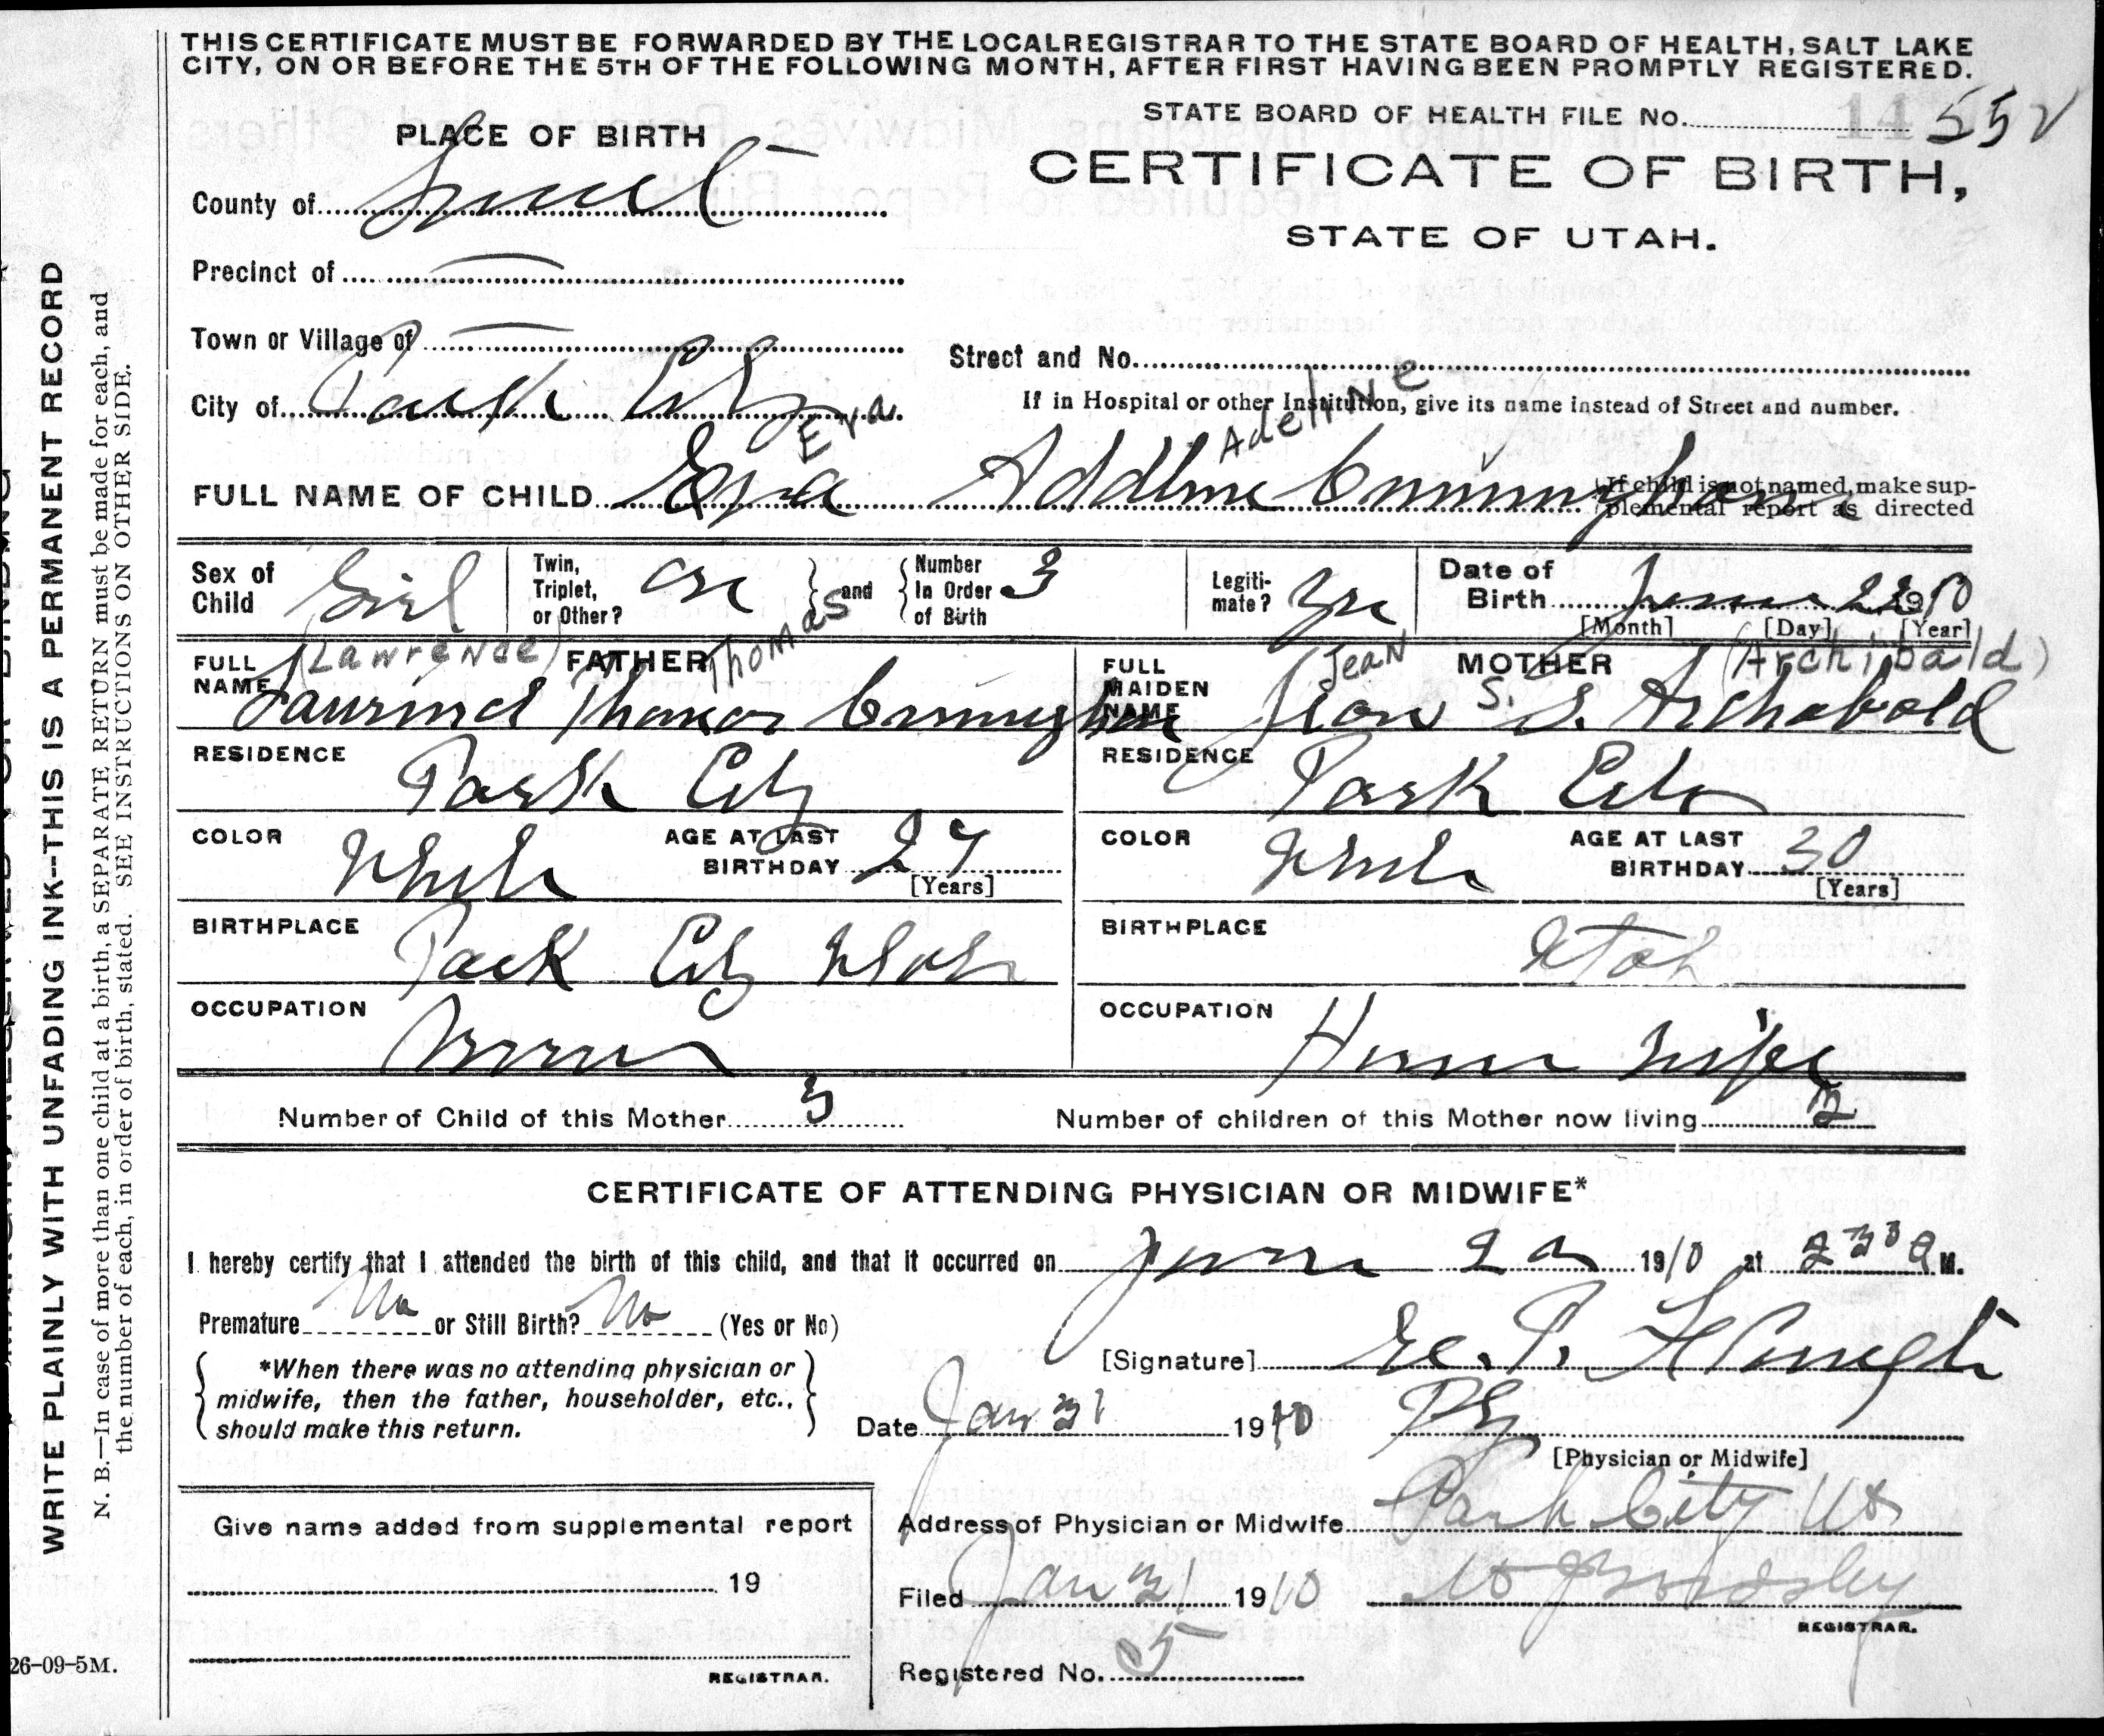 THIS CERTIFICATE MUST BE FORWARDED BY THE LOCAL REGISTRAR TO THE STATE BOARD OF HEALTH, SALT LAKE
CITY, ON OR BEFORE THE 5TH OF THE FOLLOWING MONTH, AFTER FIRST HAVING BEEN PROMPTLY REGISTERED.
STATE BOARD OF HEALTH FILE No. 14 552
PLACE OF BIRTH
CERTIFICATE OF BIRTH,
STATE OF UTAH.
County of Summit
Precinct of —
Town or Village of —
Street and No.
City of Park City
If in Hospital or other Institution, give its name instead of Street and number.
Eva Adeline
FULL NAME OF CHILD Eva Addline Cunningham
If child is not named, make sup-
plemental report as directed
Sex of Child Girl
Twin, Triplet, or Other?
and Number In Order of Birth 3
Legiti-mate? Yes
Date of Birth 1910
[Month] [Day] [Year]
FATHER
(Lawrence) Thomas
FULL NAME Thomas Cunningham
RESIDENCE Park City
COLOR White
AGE AT LAST BIRTHDAY
[Years]
BIRTHPLACE Park City Utah
OCCUPATION Miner
MOTHER
Jean S. (Archibald)
FULL MAIDEN NAME Jean S. Archabald
RESIDENCE Park City
COLOR White
AGE AT LAST BIRTHDAY 30
[Years]
BIRTHPLACE Utah
OCCUPATION House Wife
Number of Child of this Mother 3
Number of children of this Mother now living 2
CERTIFICATE OF ATTENDING PHYSICIAN OR MIDWIFE*
I hereby certify that I attended the birth of this child, and that it occurred on 1910 at 2 30 A M.
Premature No or Still Birth? No (Yes or No)
*When there was no attending physician or
midwife, then the father, householder, etc.,
should make this return.
[Signature] E. P.
Date Jan 31 1910
[Physician or Midwife]
Address of Physician or Midwife Park City Ut
Give name added from supplemental report
19
REGISTRAR.
Filed Jan 31 1910
REGISTRAR.
Registered No. 5
26-09-5M.
WRITE PLAINLY WITH UNFADING INK--THIS IS A PERMANENT RECORD
N. B.—In case of more than one child at a birth, a SEPARATE RETURN must be made for each, and
the number of each, in order of birth, stated. SEE INSTRUCTIONS ON OTHER SIDE.